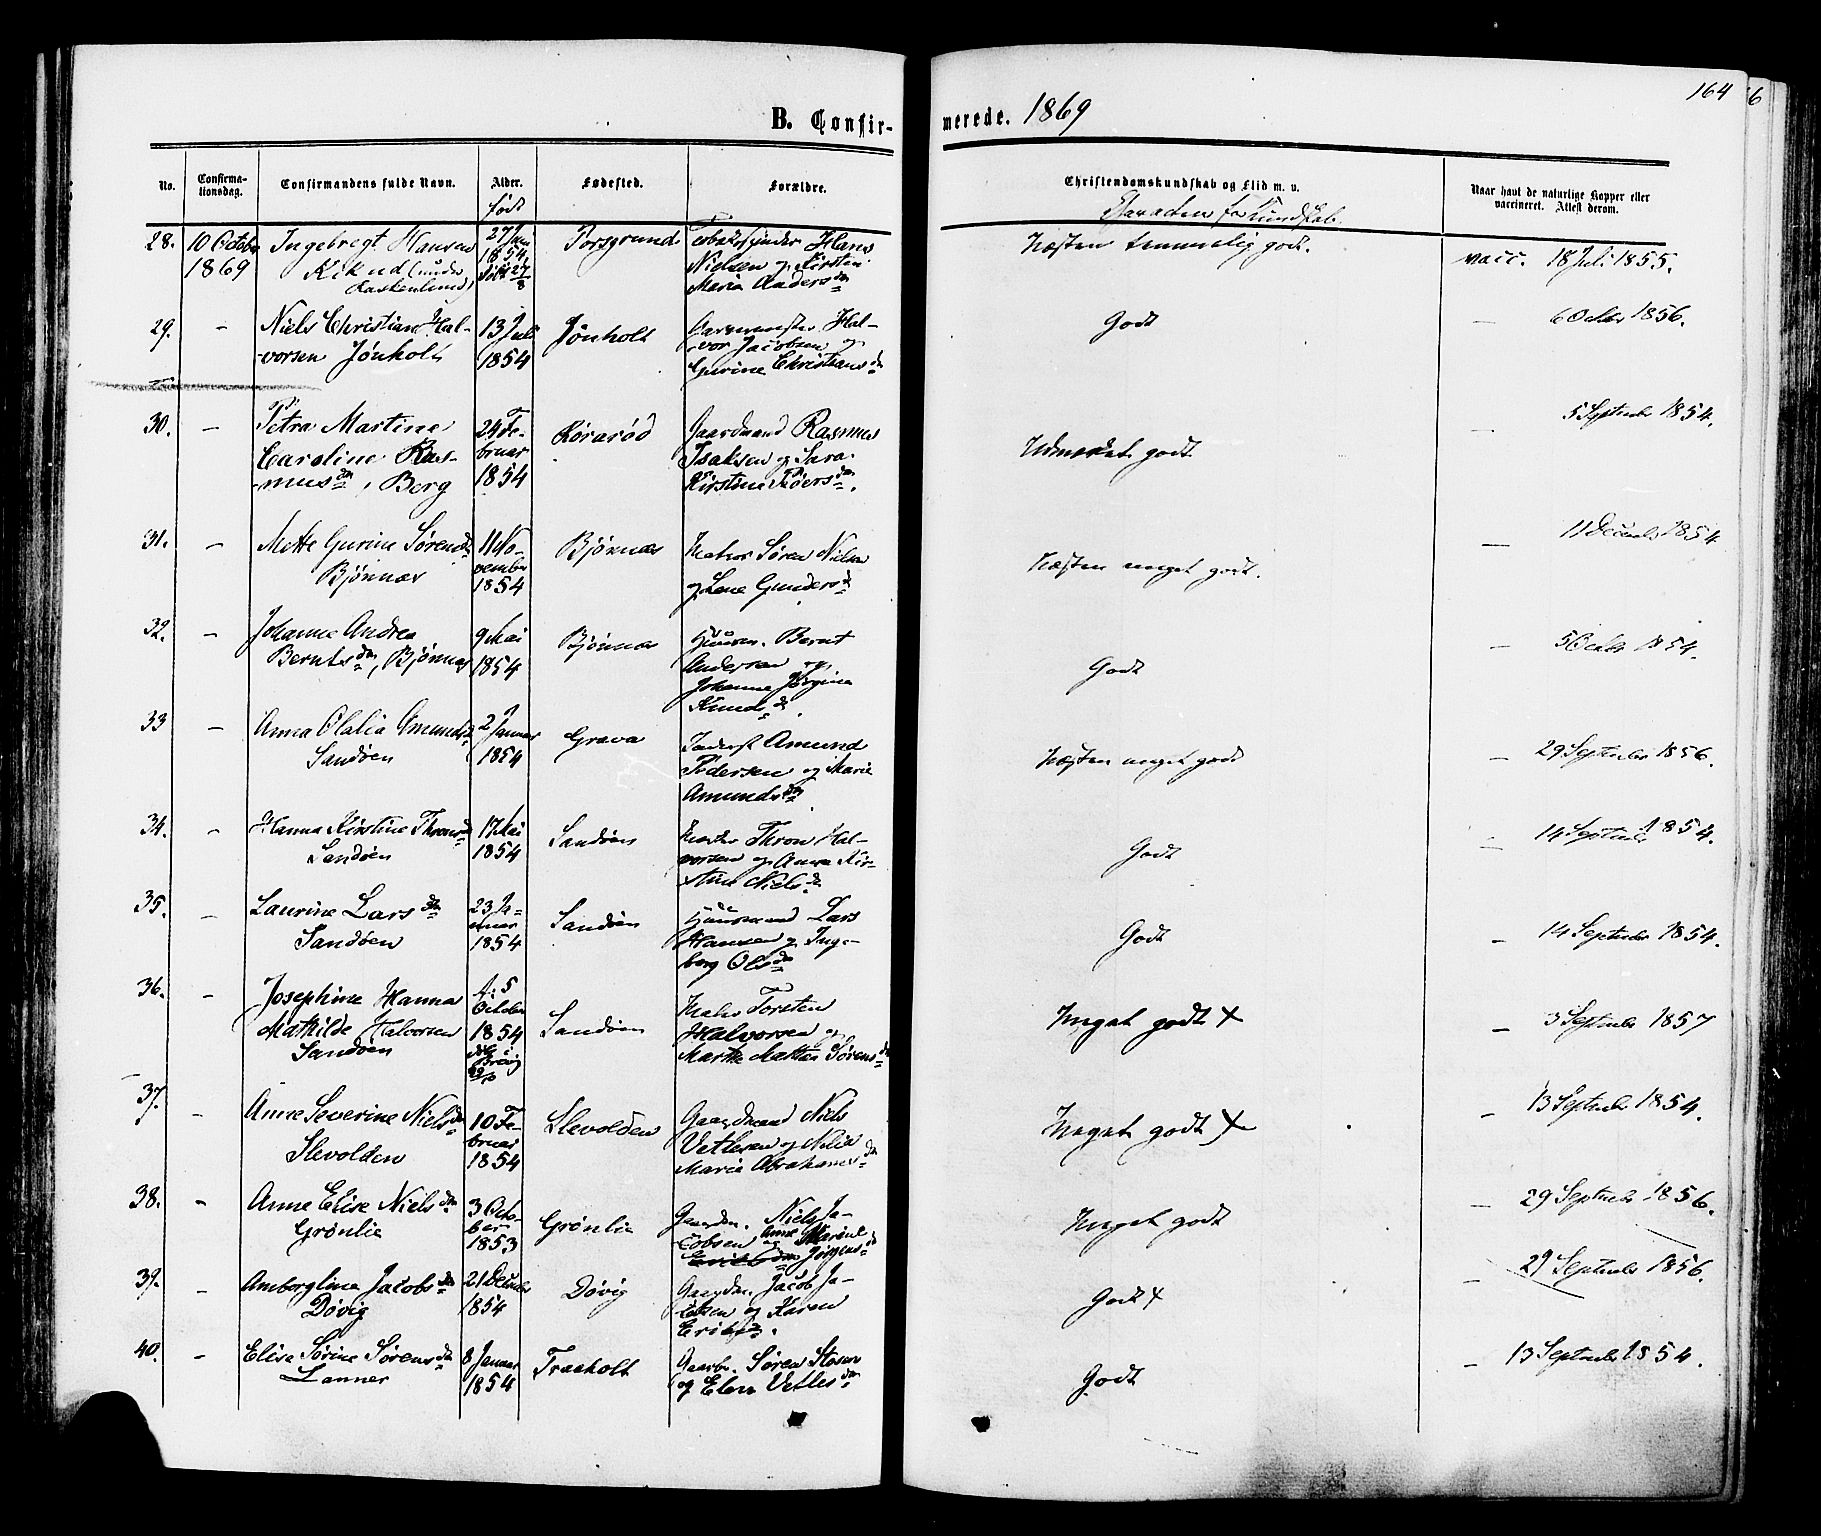 164
B. Confir-
merede. 1869
No.
Confirma-
tionsdag.
Confirmandens fulde Navn.
Alder.
født
Fødested.
Forældre.
Christendomskundskab og Flid m. v.
Naar havt de naturlige Kopper eller
vaccineret. Attest derom.
28.
10 October
1869
Ingebregt Hansen
1854
Porsgrund
Hans
Nielsen og Kirstine
Maria Andersdr
Næsten temmelig godt.
vacc. 18 Juli 1855.
29.
-
Niels Christian Hal-
vorsen Jønholt
13 Juli
1854
Jønholt
Hal-
vor Jacobsen og
Gurine Christiansdr
Godt
- 6 Octbr 1856.
30.
-
Petra Martine
Caroline Ras-
musdr, Berg
24 Fe-
bruar
1854
Rørarød
Gaardmand Rasmus
Isaksen og Sara
Kirstine Piøersdr.
Udmærket godt
- 5 September 1854.
31.
-
Mette Gurine Sørensdr
Bjønnes
11 No-
vember
1854
Bjørnæs
Matros Søren Nielsen
og Lene Gundersdr
Næsten meget godt.
- 11 December 1854
32.
-
Johanne Andrea
Berntsdr, Bjønnes
9 Mai
1854
Bjønnes
Huusm. Bernt
Andersen og
Johanne Jørgine
Knudsdr.
Godt
- 5 Octbr 1854.
33
-
Anna Olalia Amundsdr
Sandøen
2 Januar
1854
Grava
Inderst Amund
Pedersen og Marie
Amundsdr
Næsten meget godt
- 29 September 1856.
34.
-
Hanna Kirstine Thronsdr
Sandøen
17 Mai
1854
Sandøen
Thron Hal-
vorsen og Anne Kir-
stine Nielsdr
Godt
- 14 Septembr 1854.
35.
-
Laurine Larsdr
Sandøen
23 Ja-
nuar
1854
Sandøen
Huusmand Lars
Hansen og Inge-
borg Olsdr
Godt
- 14 September 1854.
36.
-
Josephine Hanna
Mathilde Halvorsen
Sandøen
f. 5
October
1854
Sandøen
Matros Torsten
Halvorsen og
Marthe Mathea Sørensdr
Meget godt x
- 3 September 1857
37.
-
Anne Severine Nielsdr
Slevolden
10 Fe-
bruar
1854
Slevolden
Gaardmand Niels
Vetlesen og
Maria Abrahamsdr
Meget godt x
- 13 September 1854.
38.
-
Anne Elise Nielsdr
Grønlie
3 Octo-
ber
1853
Grønlie
Gaardm. Niels Ja-
cobsen Anne
Jørgensdr
Meget godt
- 29 September 1856.
39.
-
Amborgline Jacobsdr
Døvig
21 December
1854
Døvig
Gaardm. Jacob Ja-
cobsen og Karen
Eriksdr.
Godt x
- 29 September 1856.
40.
-
Elise Sørine Sørensdr
Lanner
8 Januar
1854
Traaholt
Gaardbr. Søren
og Elen Vetlesdr
Godt
- 13 September 1854.